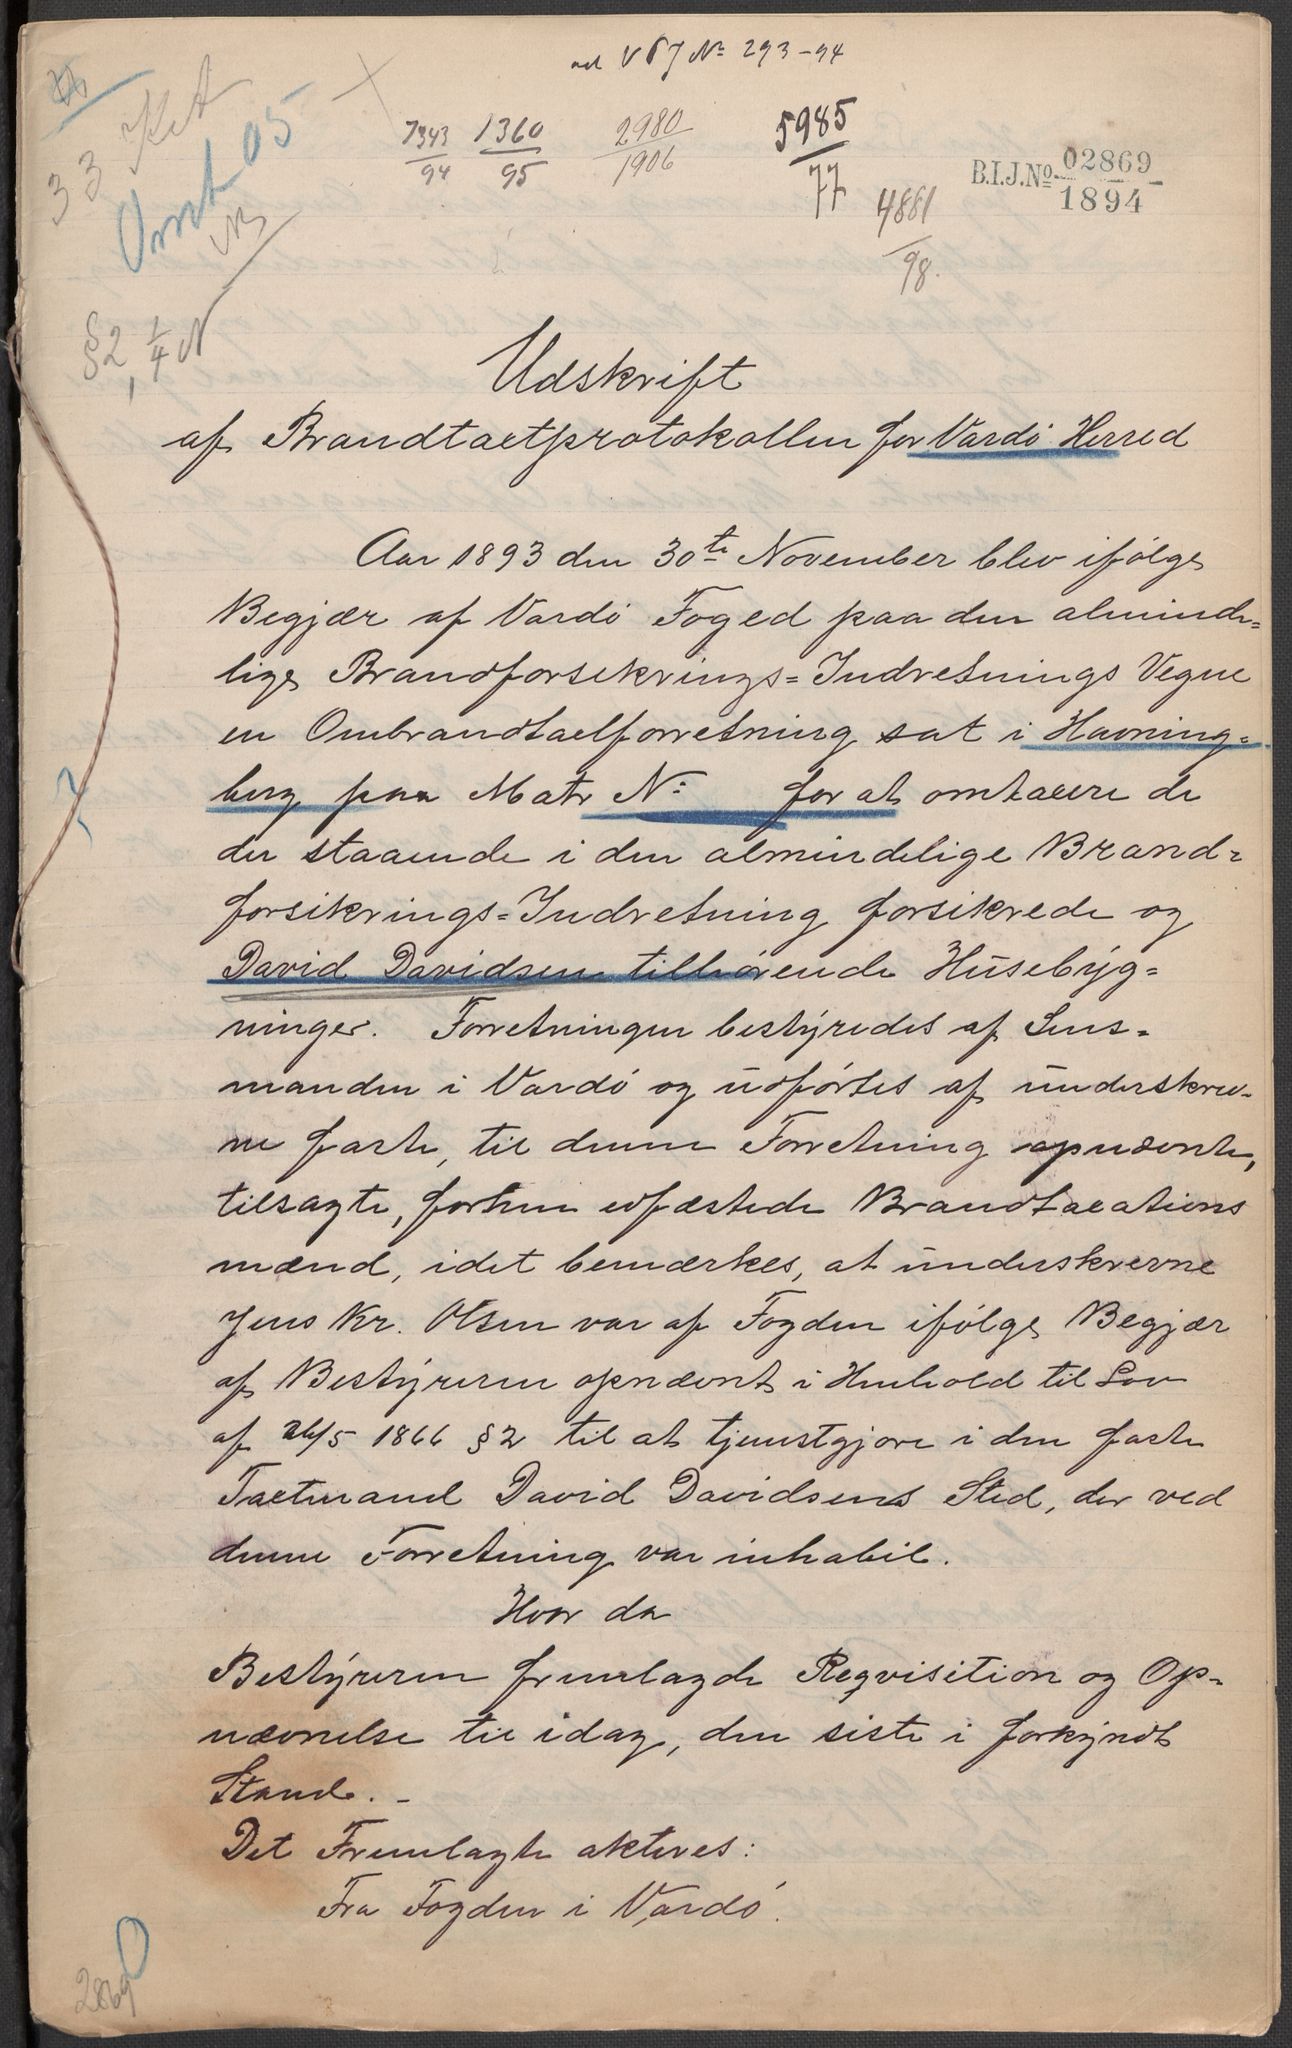 ad V F J No 293-94
7343/94 1360/95 2980/1906 5985/77
4881/98.
B.I.J.No 02869/1894
33
Omt 05
§2, 1/4 N
Udskrift
af Brandtaxtprotokollen for Vardö Herred
Aar 1893 den 30te November blev ifölge
Begjær af Vardö Foged paa den alminde=
lige Brandforsikrings=Indretnings Vegne
en Ombrandtaxtforretning sat i Havning=
berg paa Matr No for at omtaxere de
der staaende i den almindelige Brand=
forsikrings=Indretning forsikrede og
David Davidsen tilhørende Husebyg=
ninger. Forretningen bestyredes af Lens=
manden i Vardö og udförtes af underskrev-
ne faste, til denne Forretning opnævnte,
tilsagte, forhen edfæstede Brandtaxations
mænd, idet bemærkes, at underskrevne
Jens Kr. Olsen var af Fogden ifölge Begjær
af Bestyreren opnævnt i Henhold til Lov
af 26/5 1866 §2 til at tjenstgjøre i den faste
Taxtmand David Davidsens Sted, der ved
denne Forretning var inhabil.
Hvor da
Bestyreren fremlagde Reqvisition og Op=
nævnelse til idag, den siste i forkyndt
Stand. -
Det Fremlagte akteres:
Fra Fogden i Vardö.
2869